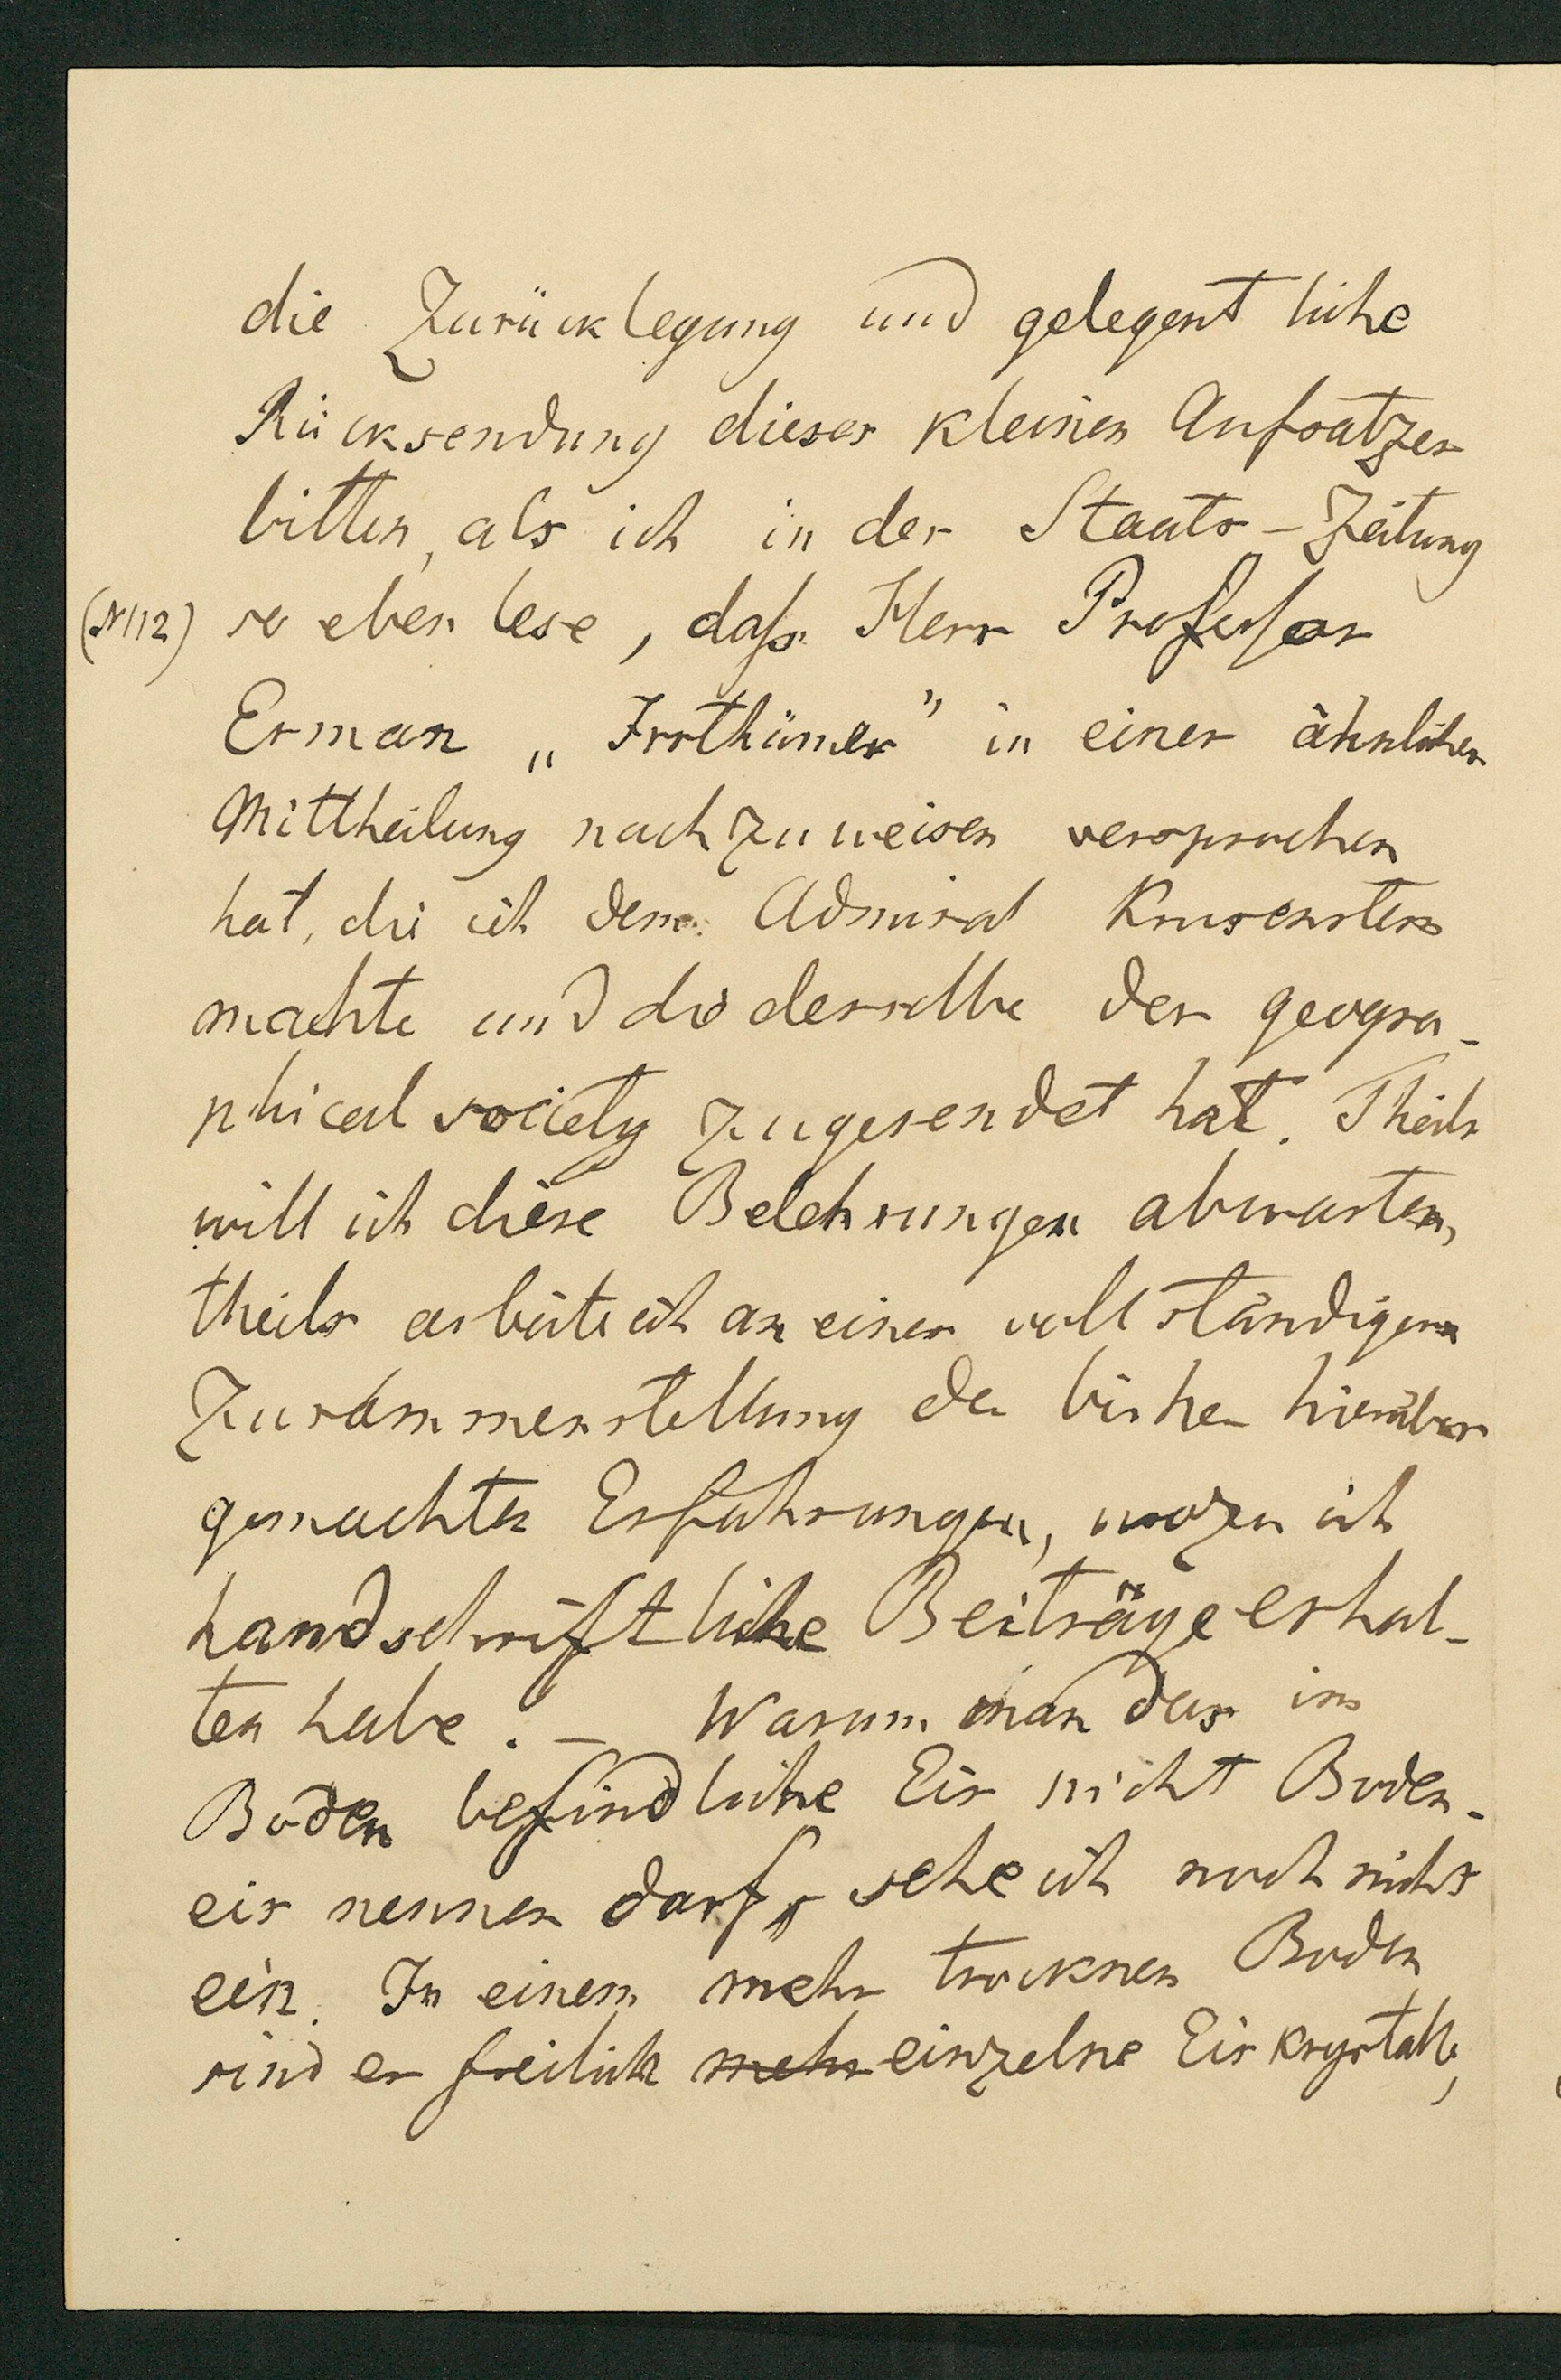 die Zurücklegung und gelegentliche
Rücksendung dieses kleinen Aufsatzes
bitten, als ich in der Staats-Zeitung
(N 112) so eben lese, daſs Herr Profeſsor
Erman „Irrthümer” in einer ähnlichen
Mittheilung nachzuweisen versprochen
hat, die ich dem Admiral Krusenstern
machte und die derselbe der geogra-
phical society zugesendet hat. Theils
will ich diese Belehrungen abwarten,
theils arbeite ich an einer vollständigern
Zusammenstellung der bisher hierüber
gemachten Erfahrungen, wozu ich
handschriftliche Beiträge erhal-
ten habe. – Warum man das im
Boden befindliche Eis nicht Boden-
eis nennen darf, sehe ich noch nicht
ein. In einem mehr trocknen Boden
sind es freilich mehr einzelne Eiskrystalle,